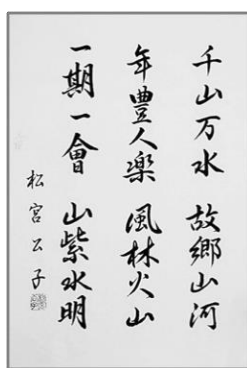 千山万水　故郷山河
年豊人楽　風林火山
一期一會　山紫水明
松宮公子